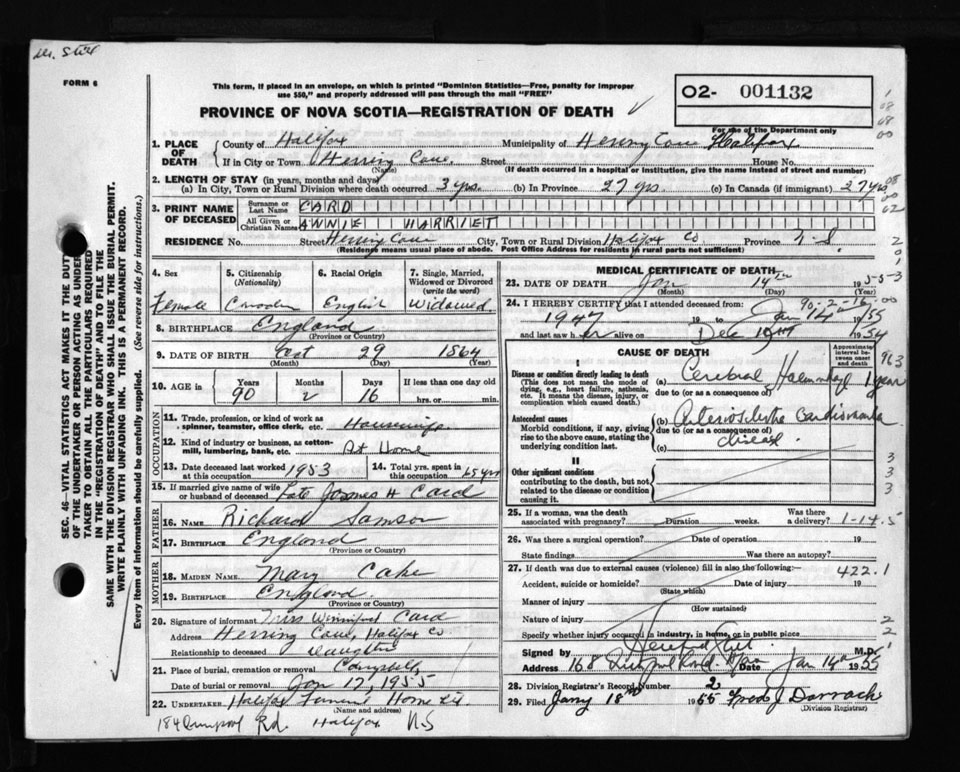 FORM 6
This form, if placed in an envelope, on which is printed "Dominion Statistics—Free, penalty for improper
use $50," and properly addressed will pass through the mail "FREE"
PROVINCE OF NOVA SCOTIA—REGISTRATION OF DEATH
O2- 001132
For use of the Department only
1. PLACE OF DEATH
County of Halifax Municipality of Herring Cove Halifax
If in City or Town Herring Cove. Street House No.
(Name) (If death occurred in a hospital or institution, give the name instead of street and number)
2. LENGTH OF STAY (in years, months and days)
(a) In City, Town or Rural Division where death occurred 3 yrs. (b) In Province 27 yrs. (c) In Canada (if immigrant) 27 yrs
3. PRINT NAME OF DECEASED
Surname or Last Name CARD
All Given or Christian Names ANNIE HARRIET
RESIDENCE No. Street Herring Cove City, Town or Rural Division Halifax Co Province N.S.
(Residence means usual place of abode. Post Office Address for residents in rural parts not sufficient)
4. Sex Female
5. Citizenship (Nationality)
6. Racial Origin English
7. Single, Married, Widowed or Divorced (write the word) Widowed.
8. BIRTHPLACE England
(Province or Country)
9. DATE OF BIRTH Oct 29 1864
(Month) (Day) (Year)
10. AGE in Years 90 Months 2 Days 16 If less than one day old hrs. or min.
OCCUPATION
11. Trade, profession, or kind of work as spinner, teamster, office clerk, etc. Housewife
12. Kind of industry or business, as cotton-mill, lumbering, bank, etc. At Home
13. Date deceased last worked at this occupation 1953
14. Total yrs. spent in this occupation 65 yrs
15. If married give name of wife or husband of deceased Late James H Card
FATHER
16. NAME Richard Samson
17. BIRTHPLACE England
(Province or Country)
MOTHER
18. MAIDEN NAME Mary Cake
19. BIRTHPLACE England.
(Province or Country)
20. Signature of informant Miss Winnifred Card
Address Herring Cove, Halifax Co.
Relationship to deceased Daughter
21. Place of burial, cremation or removal
Date of burial or removal Jan 17, 1955
22. UNDERTAKER Halifax Funeral Home Ltd
(Name and address)
184 Rd. Halifax N.S
MEDICAL CERTIFICATE OF DEATH
23. DATE OF DEATH Jan 14th 1955
(Month) (Day)
24. I HEREBY CERTIFY that I attended deceased from:
1947 19 to Jan 14th 1955
and last saw her alive on Dec 1954
CAUSE OF DEATH
Approximate interval between onset and death
I
Disease or condition directly leading to death
(This does not mean the mode of dying, e.g., heart failure, asthenia, etc. It means the disease, injury, or complication which caused death.)
(a) Cerebral Haemorrhage 1 year
due to (or as a consequence of)
Antecedent causes
Morbid conditions, if any, giving rise to the above cause, stating the underlying condition last.
(b)
due to (or as a consequence of)
disease
(c)
II
Other significant conditions
contributing to the death, but not related to the disease or condition causing it.
25. If a woman, was the death associated with pregnancy? Duration weeks. Was there a delivery?
26. Was there a surgical operation? Date of operation 19
State findings Was there an autopsy?
27. If death was due to external causes (violence) fill in also the following:—
422.1
Accident, suicide or homicide? Date of injury 19
(State which)
Manner of injury
(How sustained)
Nature of injury
Specify whether injury occurred in industry, in home, or in public place
Signed by M.D.
Address 168 Date Jan 14th 1955
28. Division Registrar's Record Number 2
29. Filed Jany 18th 1955 Fred J Darrach
(Division Registrar)
SEC. 46—VITAL STATISTICS ACT MAKES IT THE DUTY
OF THE UNDERTAKER OR PERSON ACTING AS UNDER-
TAKER TO OBTAIN ALL THE PARTICULARS REQUIRED
IN THE "REGISTRATION OF DEATH" AND TO FILE THE
SAME WITH THE DIVISION REGISTRAR WHO SHALL ISSUE THE BURIAL PERMIT.
WRITE PLAINLY WITH UNFADING INK. THIS IS A PERMANENT RECORD.
Every item of information should be carefully supplied. (See reverse side for instructions.)